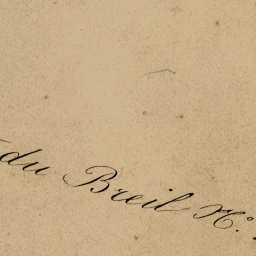 du Breil N°.